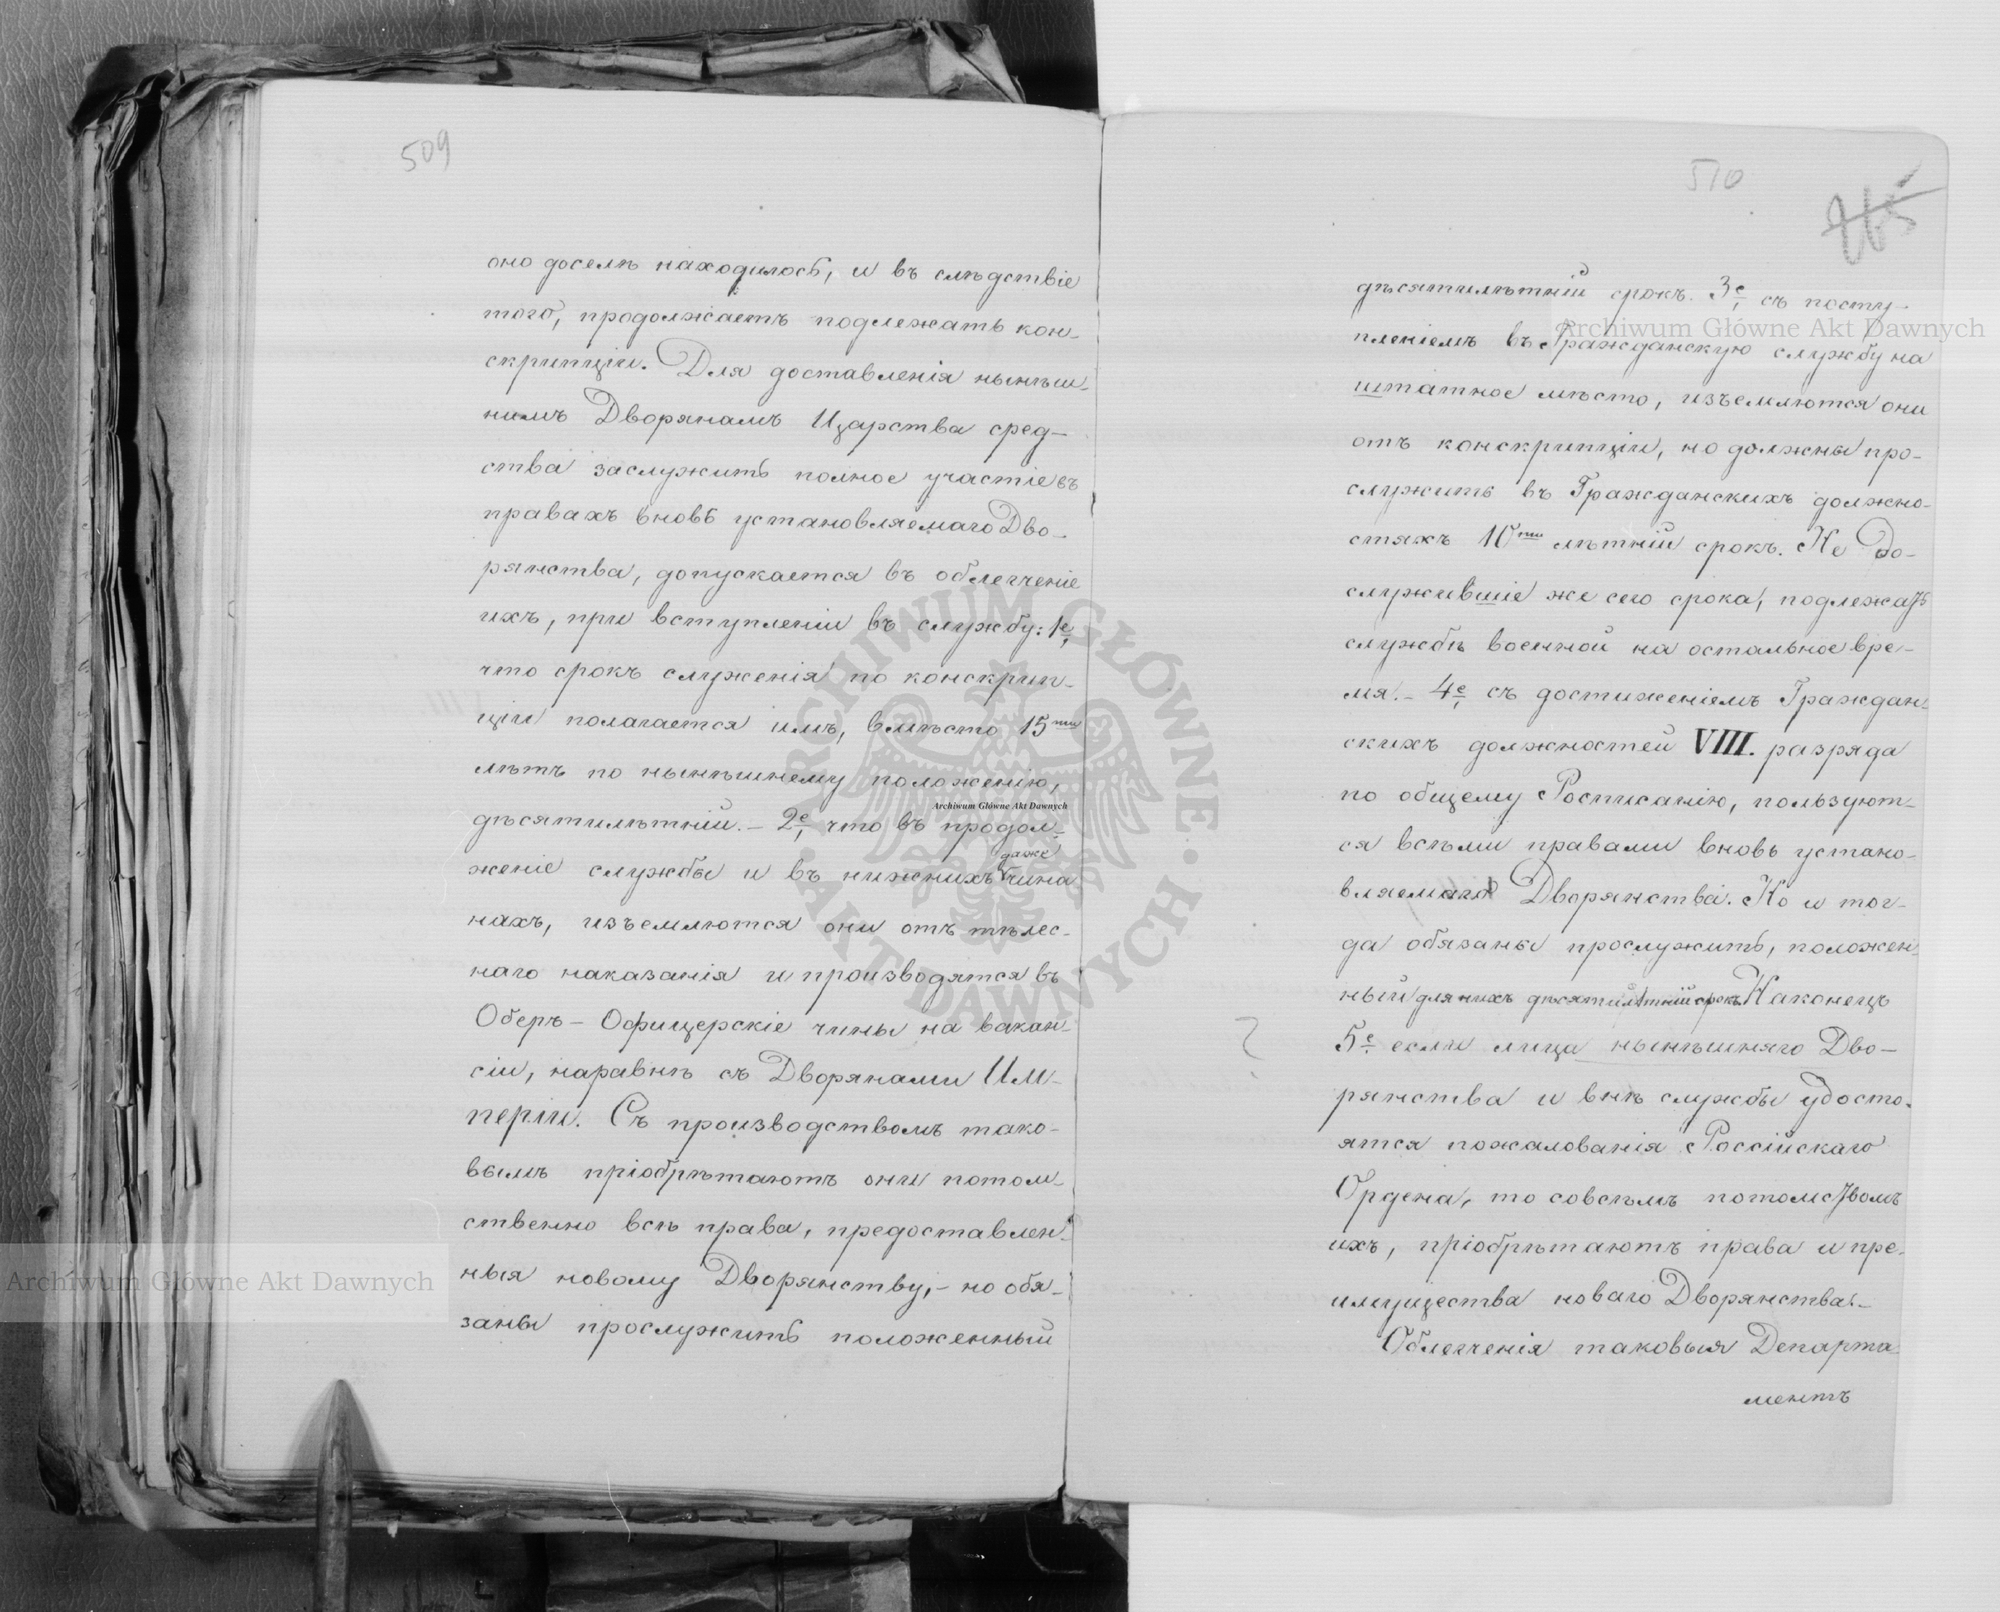 509
оно доселѣ находилось, и въ слѣдствіе
того, продолжаетъ подлежать кон-
скрипціи. Для доставленія нынѣш-
нимъ Дворянамъ Царства сред-
ства заслужить полное участіе въ
правахъ вновь установляемаго Дво-
рянства, допускается въ облегченіе
ихъ, при вступленіи въ службу: 1е,
что срокъ служенія по конскрип-
ціи полагается имъ, вмѣсто 15ти
лѣтъ по нынѣшнему положенію,
дѣсятилѣтній. – 2е, что въ продол-
женіе службы и въ нижнихъ даже чина
нахъ, изъемлются они отъ тѣлес-
наго наказанія и производятся въ
Оберъ – Офицерскіе чины на вакан-
сіи, наравнѣ съ Дворянами Им-
періи. Съ производствомъ тако-
вымъ пріобрѣтаютъ они потом-
ственно всѣ права, предоставлен-
ныя новому Дворянству, – но обя-
заны прослужить положенный
510
265
дѣсятилѣтній срокъ. 3е, съ посту-
пленіемъ въ Гражданскую службу на
штатное мѣсто, изъемлются они
отъ конскрипціи, но должны про-
служить въ Гражданскихъ должно-
стяхъ 10ти лѣтній срокъ. Не до-
служившіе же сего срока, подлежатъ
службѣ военной на остальное вре-
мя. – 4е, съ достиженіемъ Граждан-
скихъ должностей VIII. разряда
по общему Росписанію, пользуют-
ся всѣми правами вновь устано-
вляемаго Дворянства. Но и тог-
да обязаны прослужить, положен-
ный для нихъ дѣсятилѣтній срокъ Наконецъ
5е. если лица нынѣшняго Дво-
рянства и внѣ службы удосто-
ятся пожалованія Россійскаго
Ордена, то совсѣмъ потомствомъ
ихъ, пріобрѣтаютъ права и пре-
имущества новаго Дворянства. –
Облегченія таковыя Департа-
ментъ
Archiwum Główne Akt Dawnych
Archiwum Główne Akt Dawnych
Archiwum Główne Akt Dawnych
ARCHIWUM GŁÓWNE · AKT DAWNYCH ·